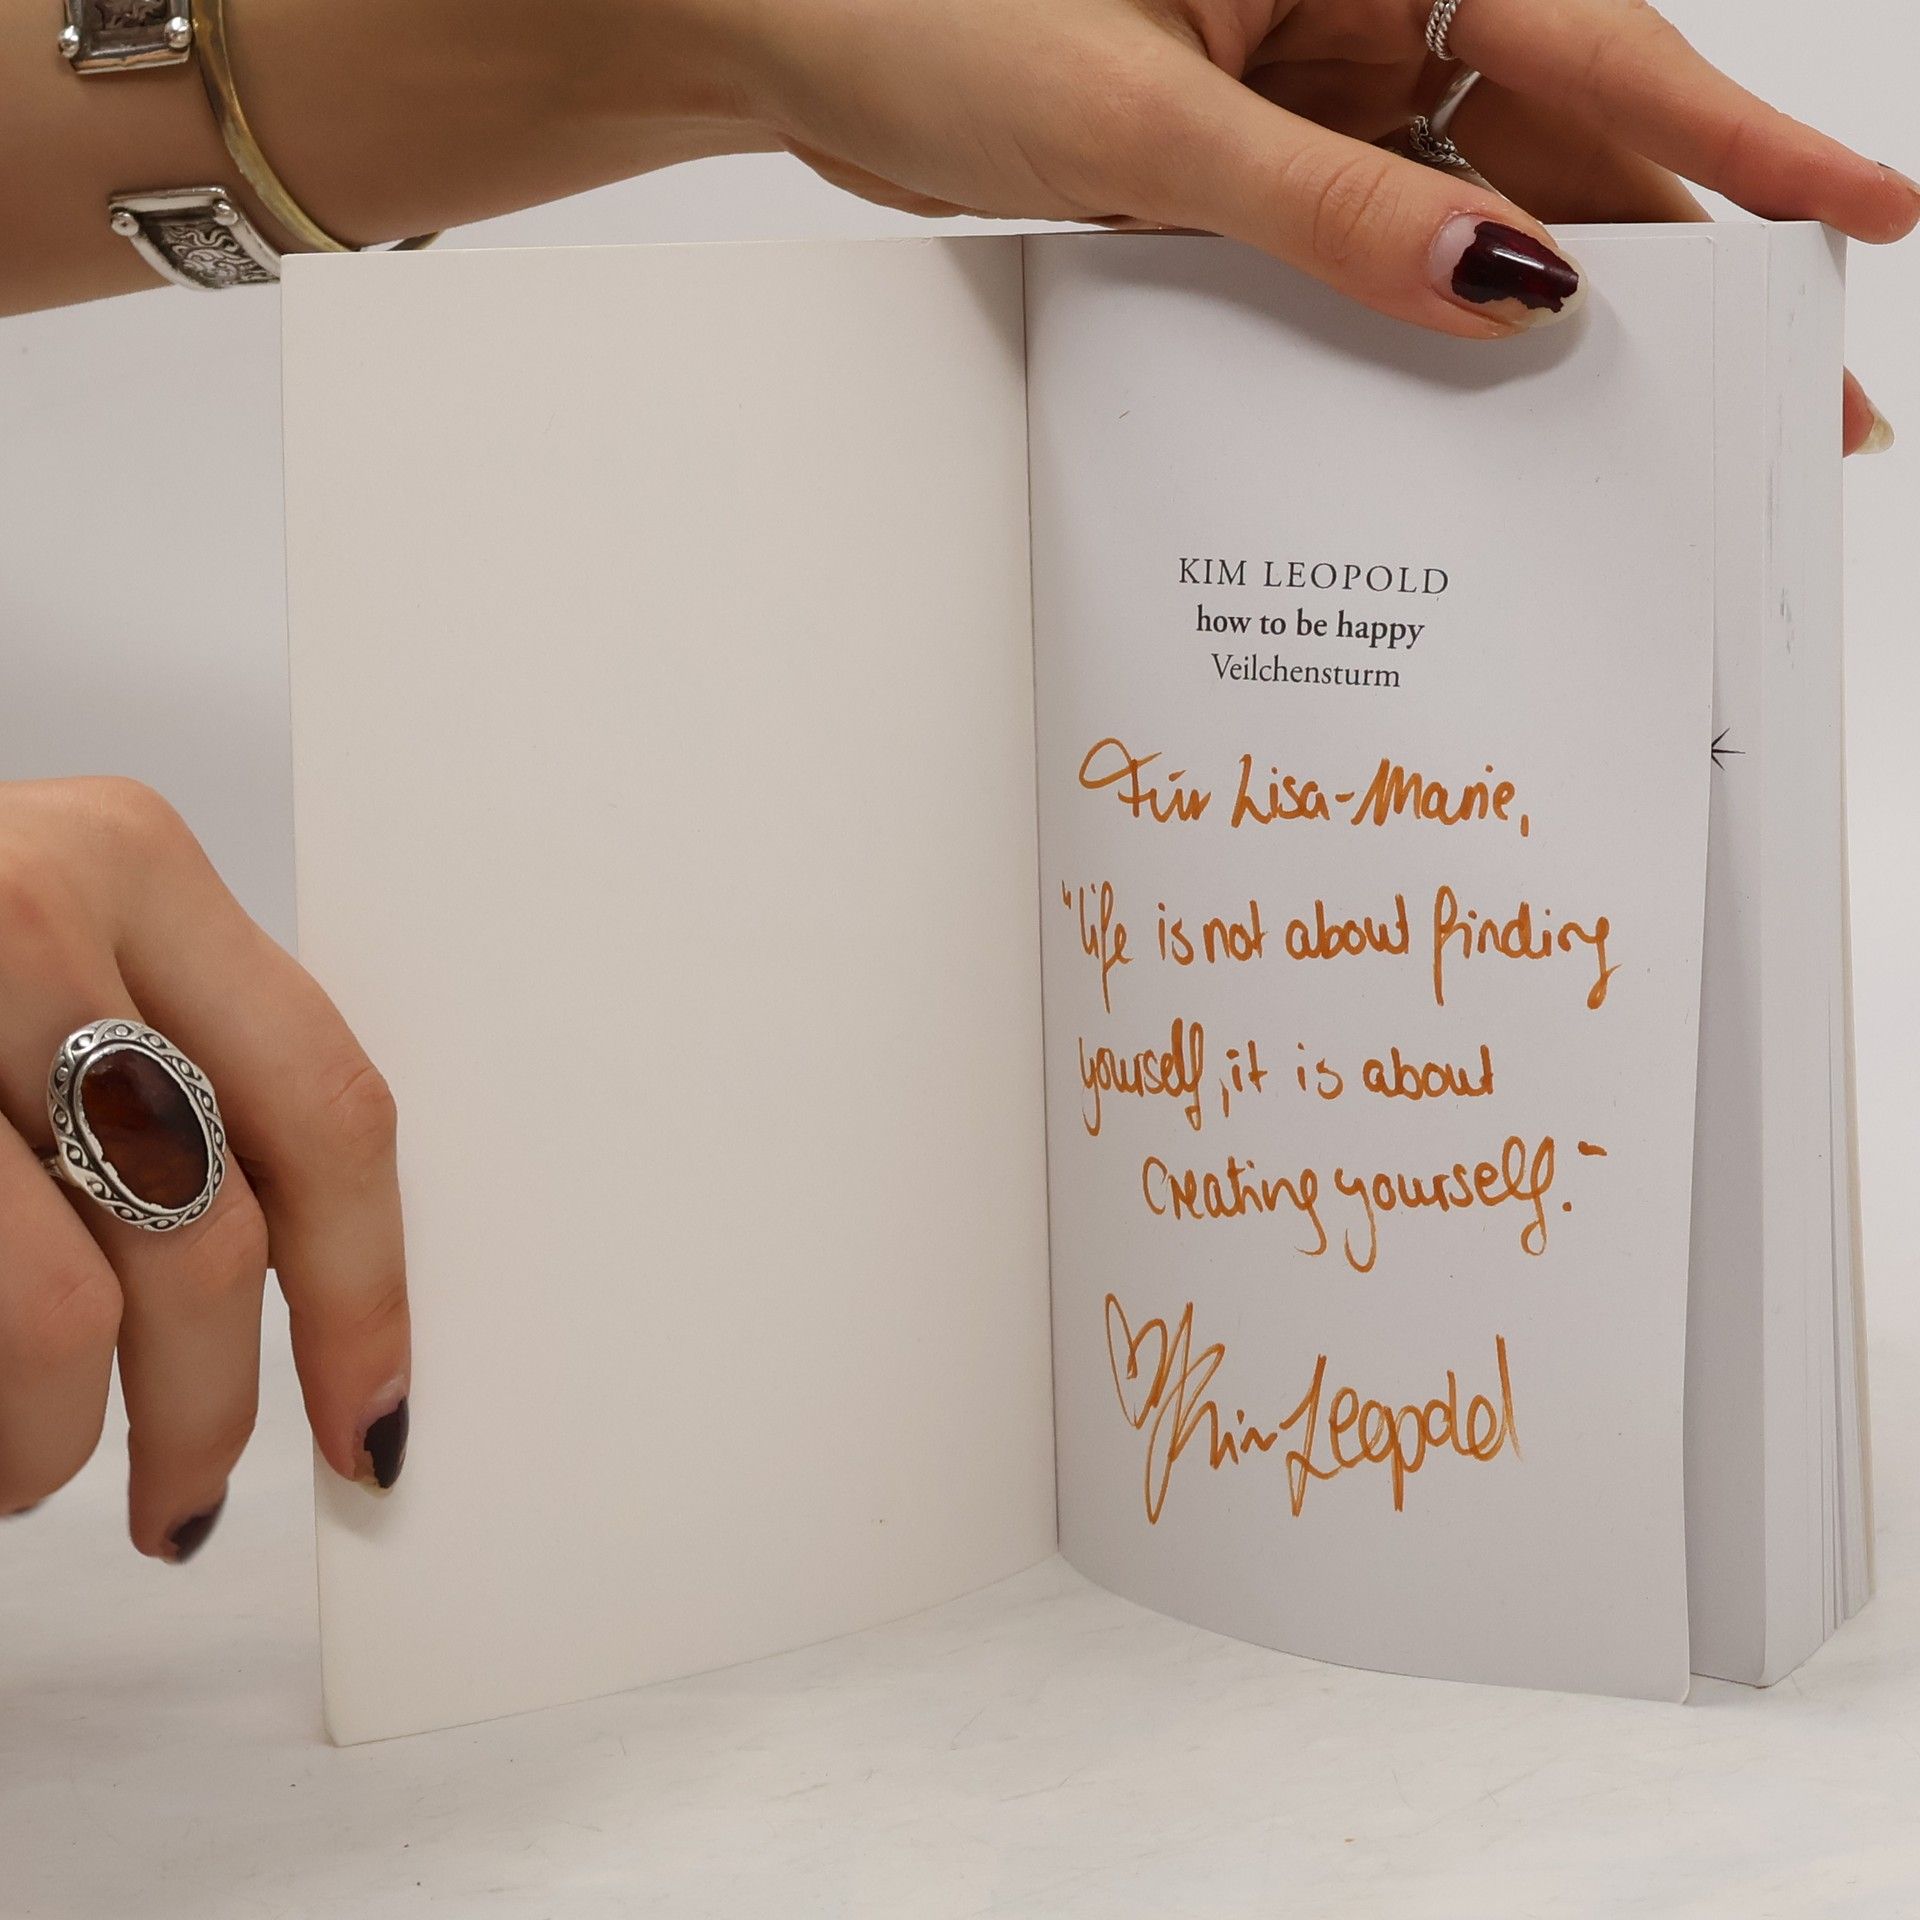 KIM LEOPOLD
how to be happy
Veilchensturm
Für Lisa-Marie,
"life is not about finding
yourself, it is about
creating yourself."
Kim Leopold